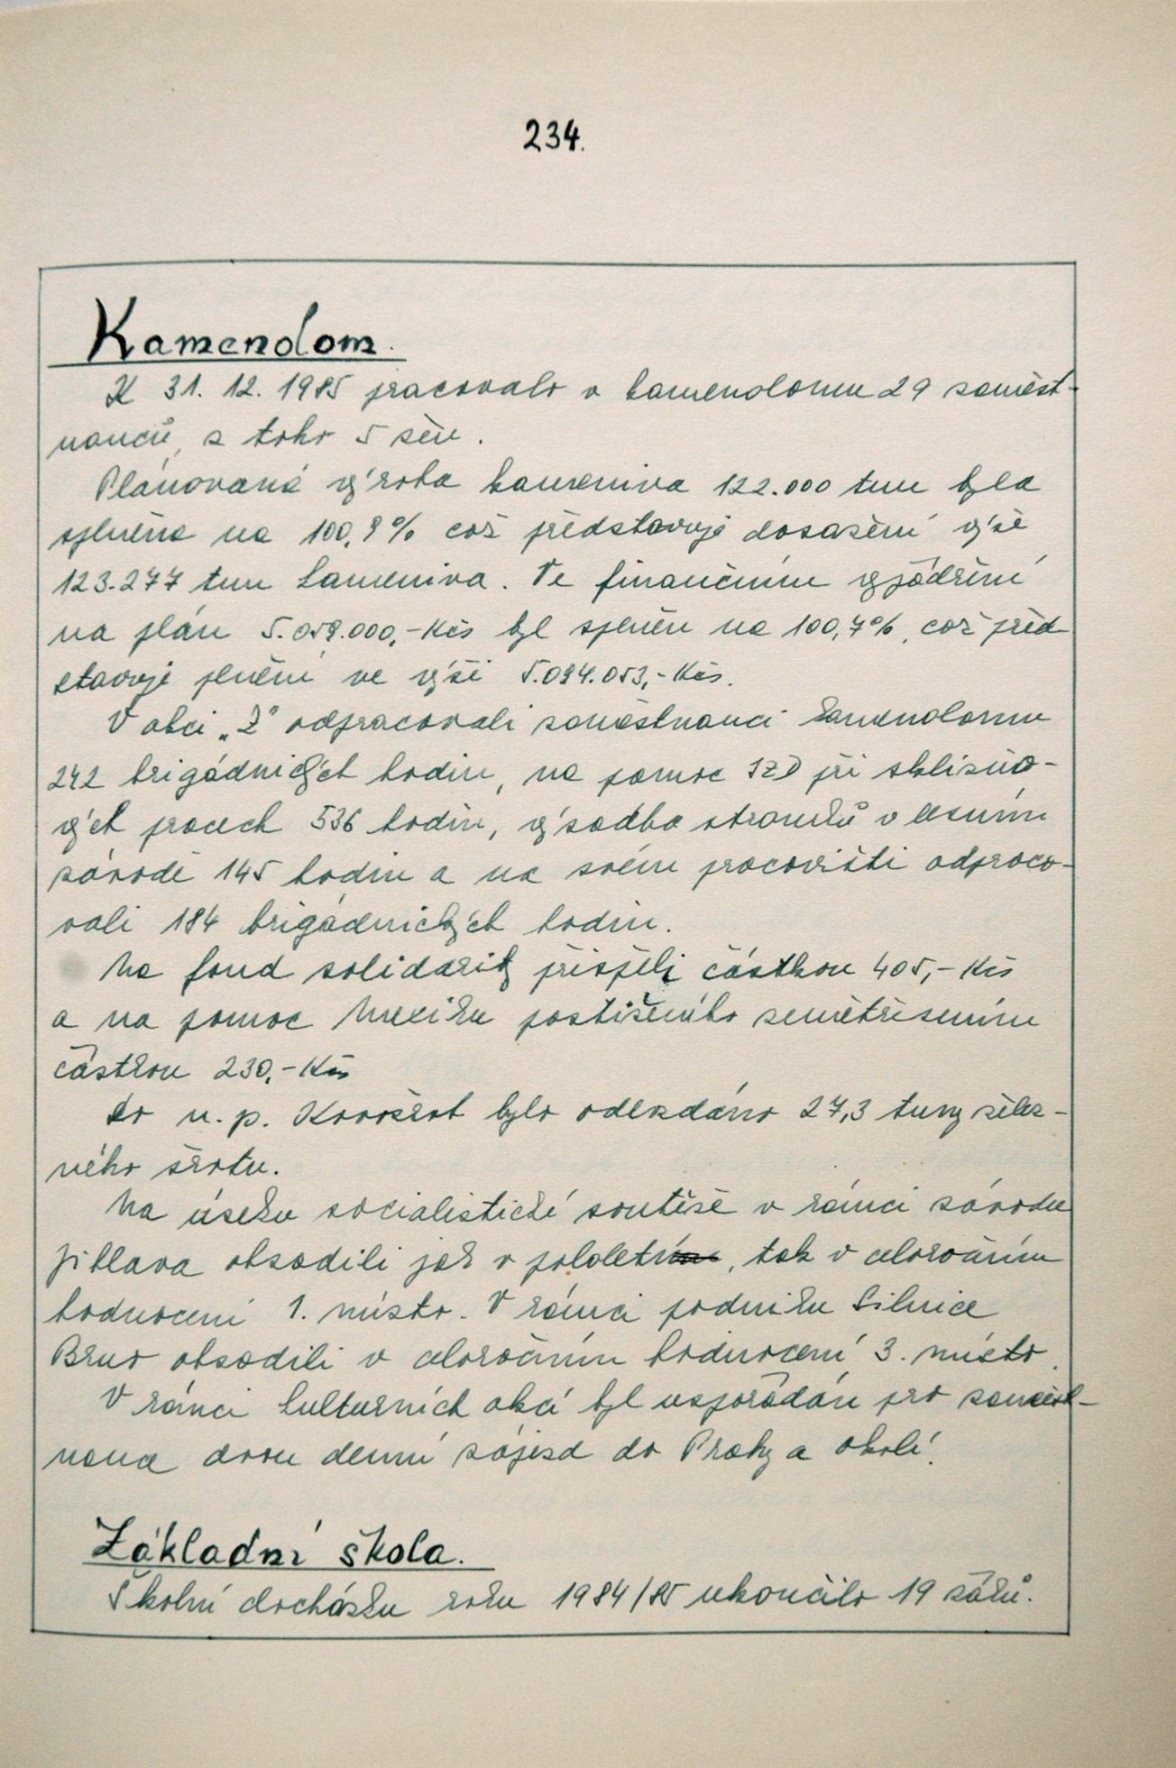 234.
Kamenolom.
K 31. 12. 1985 pracovalo v kamenolomu 29 zaměst-
nanců, z toho 5 žen.
Plánovaná výroba kameniva 122.000 tun byla
splněna na 100,9% což představuje dosažení výše
123.277 tun kameniva. Ve finančním vyjádření
na plán 5.059.000,- Kčs byl splněn na 100,7%, což před-
stavuje plnění ve výši 5.094.053,- Kčs.
V akci „Z" odpracovali zaměstnanci kamenolomu
242 brigádnických hodin, na pomoc JZD při sklizňo-
vých pracech 536 hodin, výsadba stromků v lesním
závodě 145 hodin a na svém pracovišti odpraco-
vali 184 brigádnických hodin.
Na fond solidarity přispěli částkou 405,- Kčs
a na pomoc Mexiku postiženého zemětřesením
částkou 230,- Kčs
do n. p. Kovošrot bylo odevzdáno 27,3 tuny želez-
ného šrotu.
Na úseku socialistické soutěže v rámci závodu
Jihlava obsadili jak v pololetní, tak v celoročním
hodnocení 1. místo. V rámci podniku Silnice
Brno obsadili v celoročním hodnocení 3. místo.
V rámci kulturních akcí byl uspořádán pro zaměst-
nance dvou denní zájezd do Prahy a okolí.
Základní škola.
Školní docházku roku 1984/85 ukončilo 19 žáků.